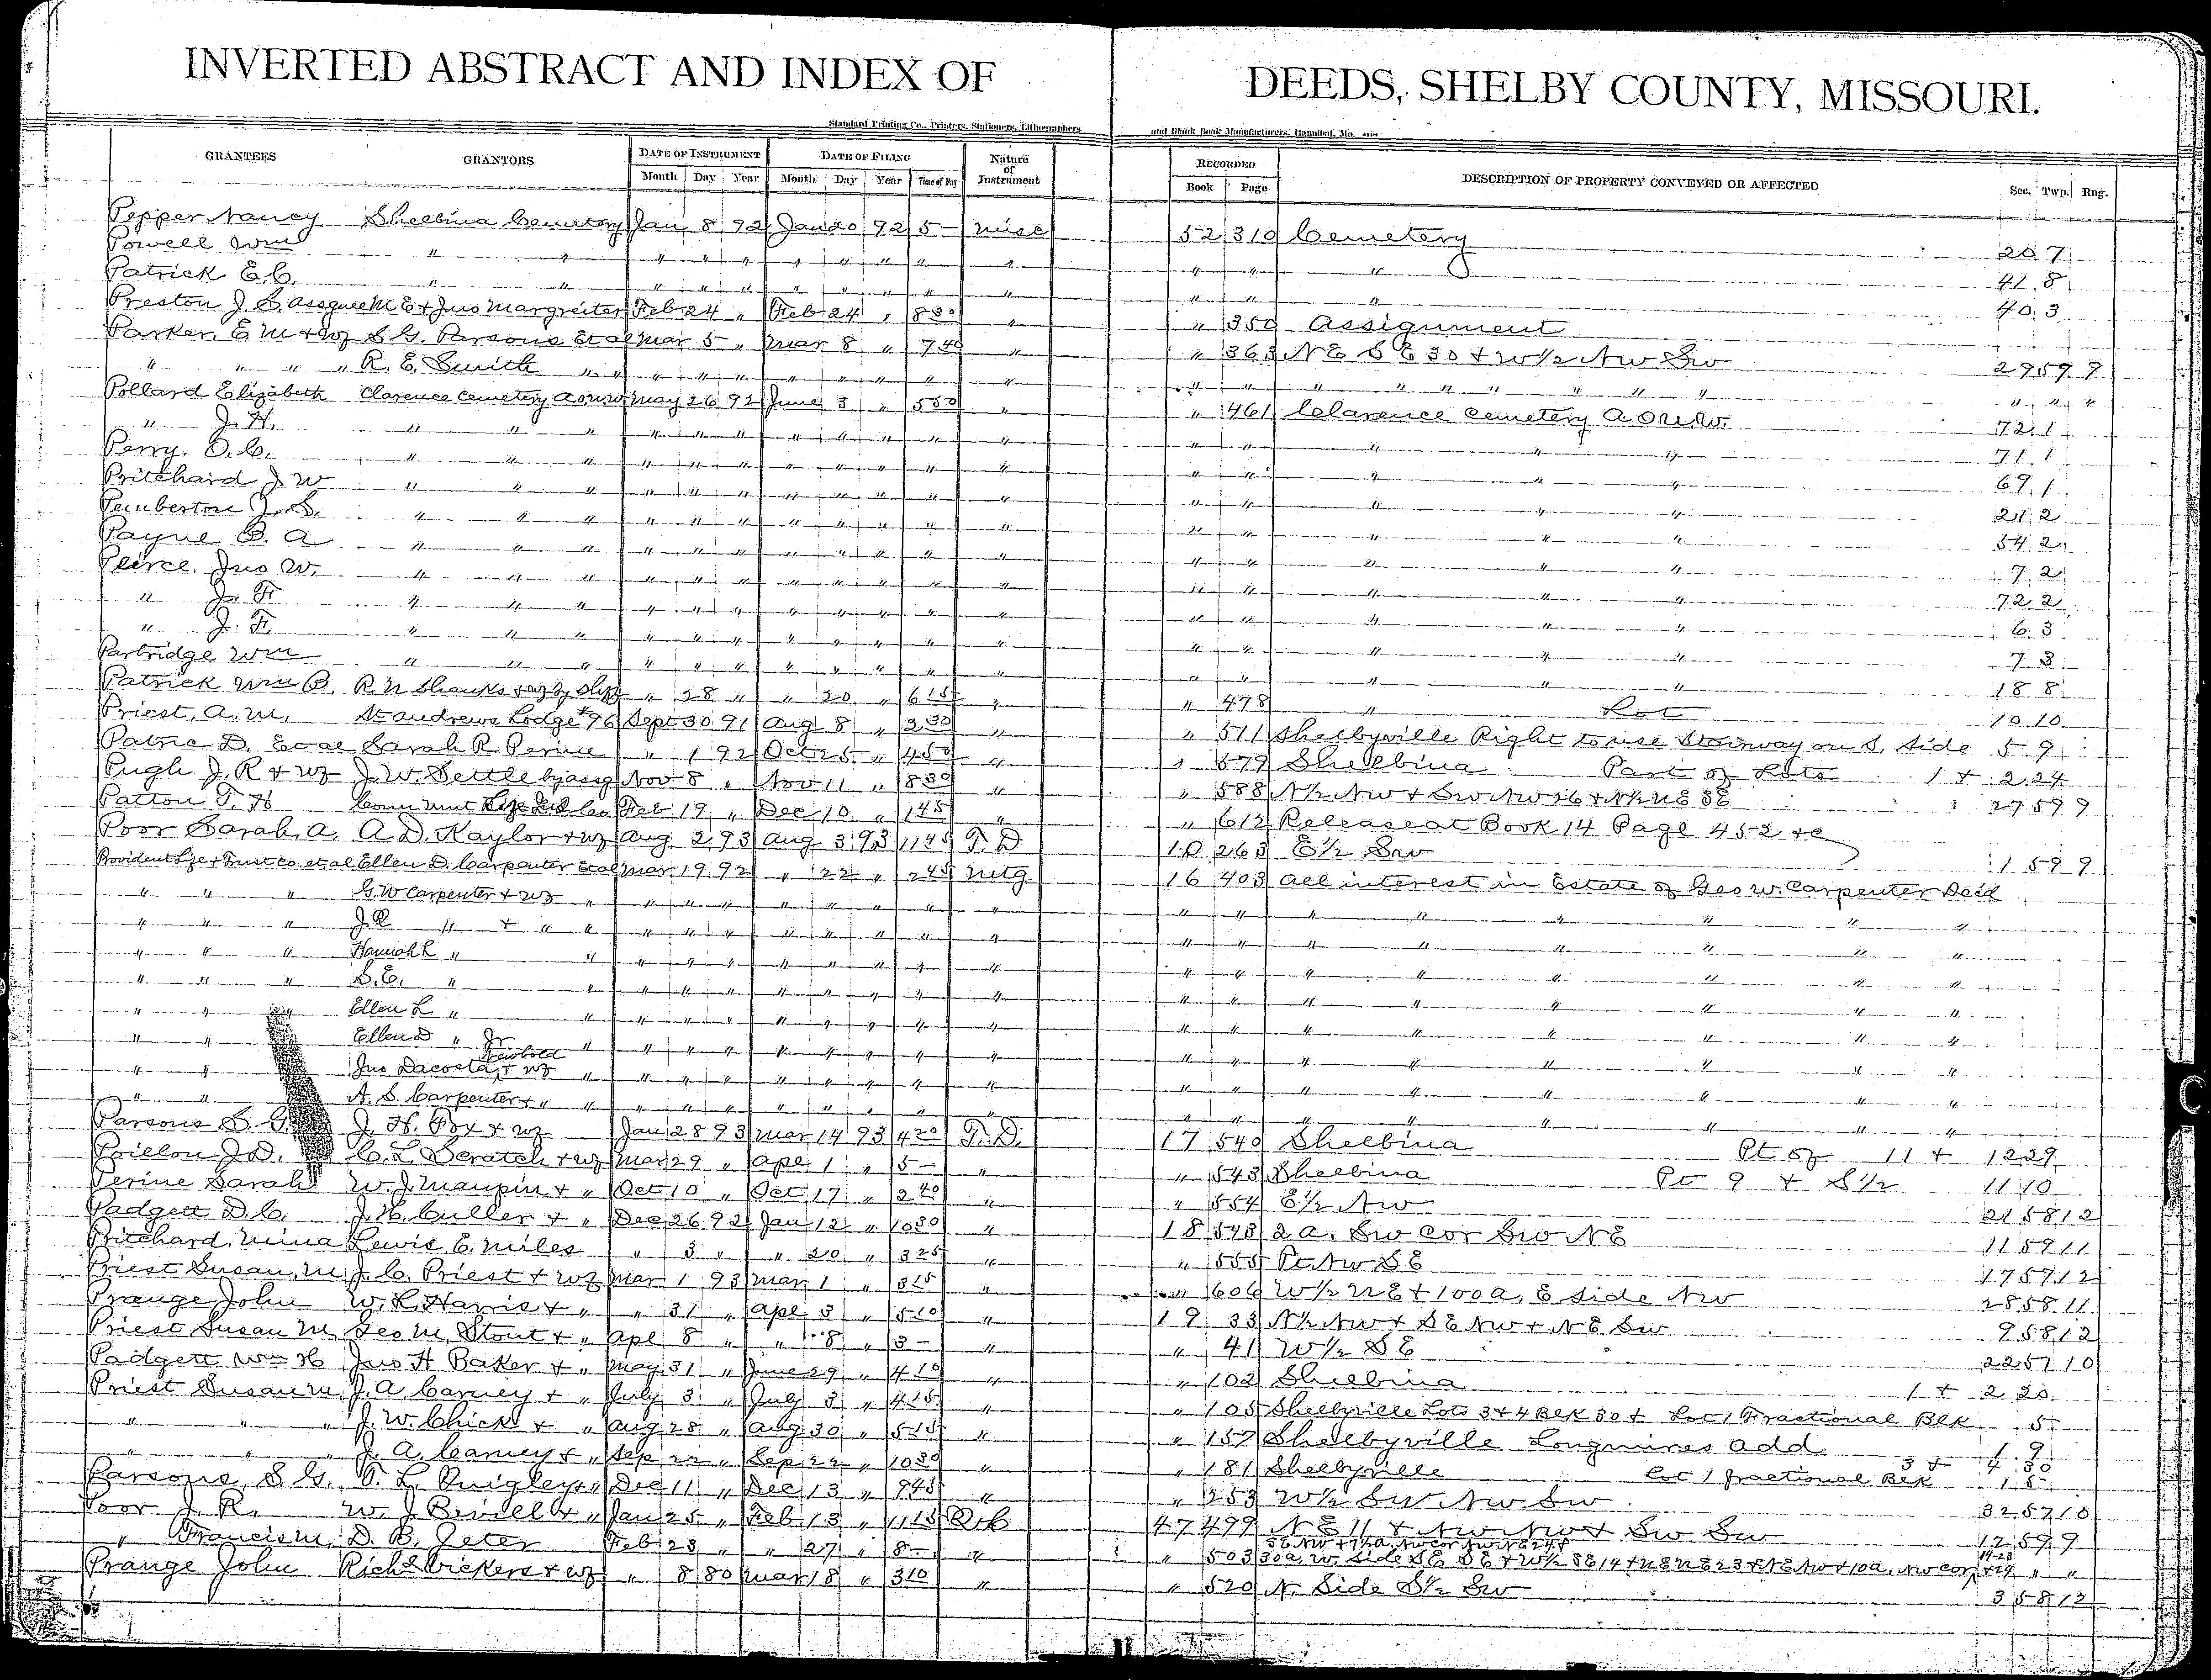 INVERTED ABSTRACT AND INDEX OF DEEDS, SHELBY COUNTY, MISSOURI.
Standard Printing Co., Printers, Stationers, Lithographers and Blank Book Manufacturers, Hannibal, Mo.
GRANTEES GRANTORS DATE OF INSTRUMENT DATE OF FILING Nature of Instrument RECORDED DESCRIPTION OF PROPERTY CONVEYED OR AFFECTED Sec. Twp. Rng.
Month Day Year Month Day Year Time of Day Book Page
Pepper Nancy Shelbina Cemetery Jan 8 92 Jan 20 92 5- misc 52 310 Cemetery 20 7
Powell Wm " " " " " " " " " " " " " 41 8
Patrick E.C. " " " " " " " " " " " " 40 3
Preston J. L. assignee M E & Jno Margreiter Feb 24 " Feb 24 " 830 " " 350 Assignment
Parker, E M & wf S G. Parsons Et al Mar 5 " Mar 8 " 740 " " 363 N E S E 30 & W 1/2 N W S W 29 59 9
" " " " R. E. Smith " " " " " " " " " " " " " " " " " " " " "
Pollard Elizabeth Clarence Cemetery A O U W May 26 92 June 3 " 550 " " 461 Clarence Cemetery A O U W. 72 1
" J. H. " " " " " " " " " " " " " " " 71 1
Perry. O. C. " " " " " " " " " " " " " " 69 1
Pritchard J. W " " " " " " " " " " " " " " 21 2
Pemberton J. S. " " " " " " " " " " " " " " 54 2
Payne B. A " " " " " " " " " " " " " " 7 2
Peirce. Jno W. " " " " " " " " " " " " " " 72 2
" J. F. " " " " " " " " " " " " " " 6 3
" J. F. " " " " " " " " " " " " " " 7 3
Partridge Wm " " " " " " " " " " " " " " 18 8
Patrick Wm B. R. N Shanks & wf by Shff " 28 " " 20 " 615 " " 478 " Lot 10 10
Priest, A. M. St Andrews Lodge #96 Sept 30 91 Aug 8 " 230 " " 511 Shelbyville Right to use Stairway on S. Side 5 9
Patric D. Et al Sarah R Perine " 1 92 Oct 25 " 450 " " 579 Shelbina Part of Lots 1 & 2 24
Pugh J. R & wf J. W. Settle by assg Nov 8 " Nov 11 " 830 " " 588 N 1/2 N W & S W N W 26 & N 1/2 N E S E 27 59 9
Patton T. H Conn Mut Life Ins Co Feb 19 " Dec 10 " 145 " " 612 Release at Book 14 Page 452 &c
Poor Sarah, A. A. D. Kaylor & wf Aug 2 93 Aug 3 93 1145 T. D 10 263 E 1/2 S W 1 59 9
Provident Life & Trust Co. et al Ellen D Carpenter Et al Mar 19 92 " 22 " 245 Mtg 16 403 All interest in Estate of Geo W. Carpenter Dec'd
" " " G. W Carpenter & wf " " " " " " " " " " " " " " " "
" " " J R " & " " " " " " " " " " " " " " " " " "
" " " Hannah L " " " " " " " " " " " " " " " " "
" " " S. E. " " " " " " " " " " " " " " " " "
" " Ellen L " " " " " " " " " " " " " " " " "
" " Ellen D " Jr " " " " " " " " " " " " " " " "
" " Jno Dacosta Newbold & wf " " " " " " " " " " " " " " " "
" " A. S. Carpenter & " " " " " " " " " " " " " " " " "
Parsons S. G. J. H. Fox & wf Jan 28 93 Mar 14 93 420 T. D. 17 540 Shelbina Pt of 11 & 12 29
J. D. C. L. Scratch & wf Mar 29 " Apl 1 " 5- " " 543 Shelbina Pt 9 & S 1/2 11 10
Perine Sarah W. J. Maupin & " Oct 10 " Oct 17 " 240 " " 554 E 1/2 N W 21 58 12
Padgett D. C. J. H. Culler & " Dec 26 92 Jan 12 " 1030 " 18 548 2 a. S W cor S W N E 11 59 11
Pritchard, Mina Lewis E. Miles " 3 " " 20 " 325 " " 555 Pt N W S E 17 57 12
Priest Susan, M J. C. Priest & wf Mar 1 93 Mar 1 " 315 " " 606 W 1/2 N E & 100 a, E Side N W 28 58 11
Prange John W. L. Harris & " " 31 " Apl 3 " 510 " 19 33 N 1/2 N W & S E N W & N E S W 9 58 12
Priest Susan M. Geo M. Stout & " Apl 8 " " 8 " 3- " " 41 W 1/2 S E 22 57 10
Padgett Wm H Jno H Baker & " May 31 " June 29 " 410 " " 102 Shelbina 1 & 2 20
Priest Susan M. J. A. Carney & " July 3 " July 3 " 415 " " 105 Shelbyville Lots 3 & 4 Blk 30 & Lot 1 Fractional Blk 5
" " " J. W. Chick & " Aug 28 " Aug 30 " 515 " " 157 Shelbyville Longmires Add. 1 9
" " " J. A. Carney & " Sep 22 " Sep 22 " 1030 " " 181 Shelbyville Lot 1 fractional Blk 3 & 4 30 1 5
Parsons, S G. T. L. Quigley & " Dec 11 " Dec 13 " 945 " " 253 W 1/2 S W N W S W 32 57 10
Poor J. R. W. J Bevill & " Jan 25 " Feb 13 " 1115 Q. C 47 499 N E 11 & N W N W & S W S W 12 59 9
" Francis M. D. B. Jeter Feb 23 " " 27 " 8- " " 503 30 a, W. Side S E S E & W 1/2 S E 14 & N E N E 23 & N E N W & 10 a, N W cor
Prange John Rich'd Vickers & wf " 8 80 Mar 18 " 310 " " 520 N. Side S 1/2 S W 3 58 12